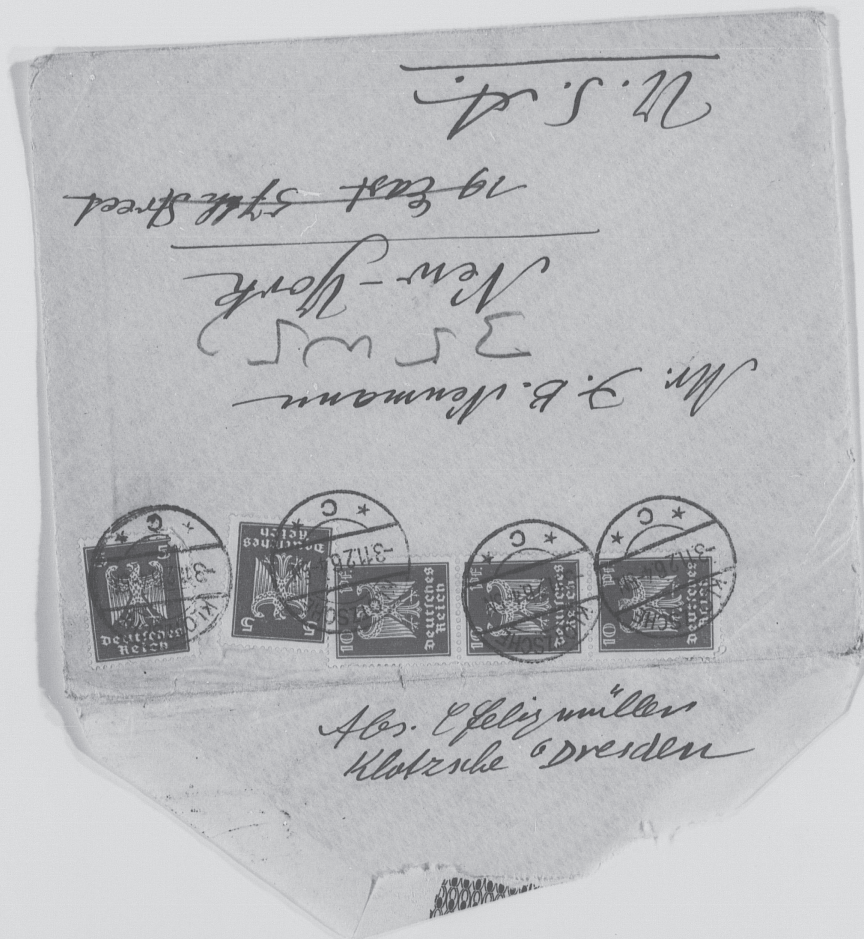 Mr. J. B. Neumann
35 W 57
New-York
19 East 57th Street
U. S. A.
5 5
Deutsches
Reich
5 5
Deutsches
Reich
10 Pf.
Deutsches
Reich
10 Pf.
Deutsches
Reich
10 Pf.
Deutsches
Reich
KLOTZSCHE
-3.11.26.4
* C *
Abs. C Felixmüller
Klotzsche b Dresden